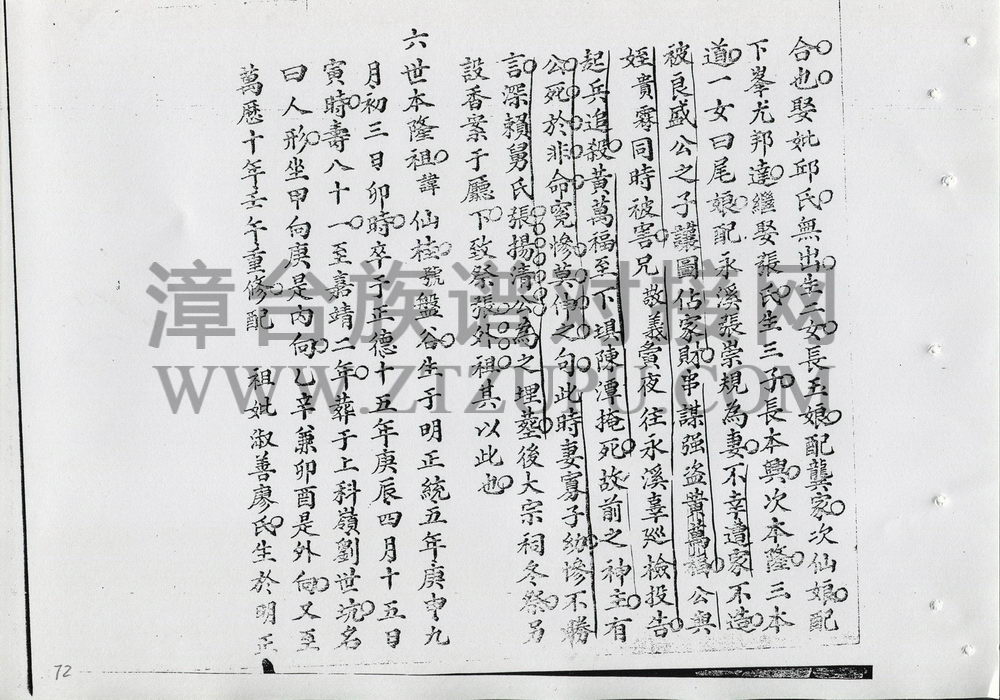 合也娶妣邱氏無出生二女長玉娘配龔家次仙娘配
下峯尤邦達繼娶張氏生三子長本興次本隆三本
道一女曰尾娘配永溪張崇規為妻不幸遭家不造
被良盛公之子謨圖佔家財串謀强盜黃萬福公與
姪貴霧同時被害兄敬義夤夜往永溪辜巡檢投告
起兵追殺黃萬福至下塤陳潭掩死故前之神主有
公死於非命寃慘莫伸之句此時妻寡子幼慘不勝
言深賴舅氏張揚清公為之埋塟後大宗祠冬祭另
設香案于廳下致祭張外祖其以此也
六世本隆祖諱仙桂號盤谷生于明正統五年庚申九
月初三日卯時卒于正德十五年庚辰四月十五日
寅時壽八十一至嘉靖二年葬于上科嶺劉世坑名
曰人形坐甲向庚是內向乙辛兼卯酉是外向又至
萬曆十年壬午重修配 祖妣淑善廖氏生於明正
72
漳台族谱对接网
WWW.ZTZUPU.COM